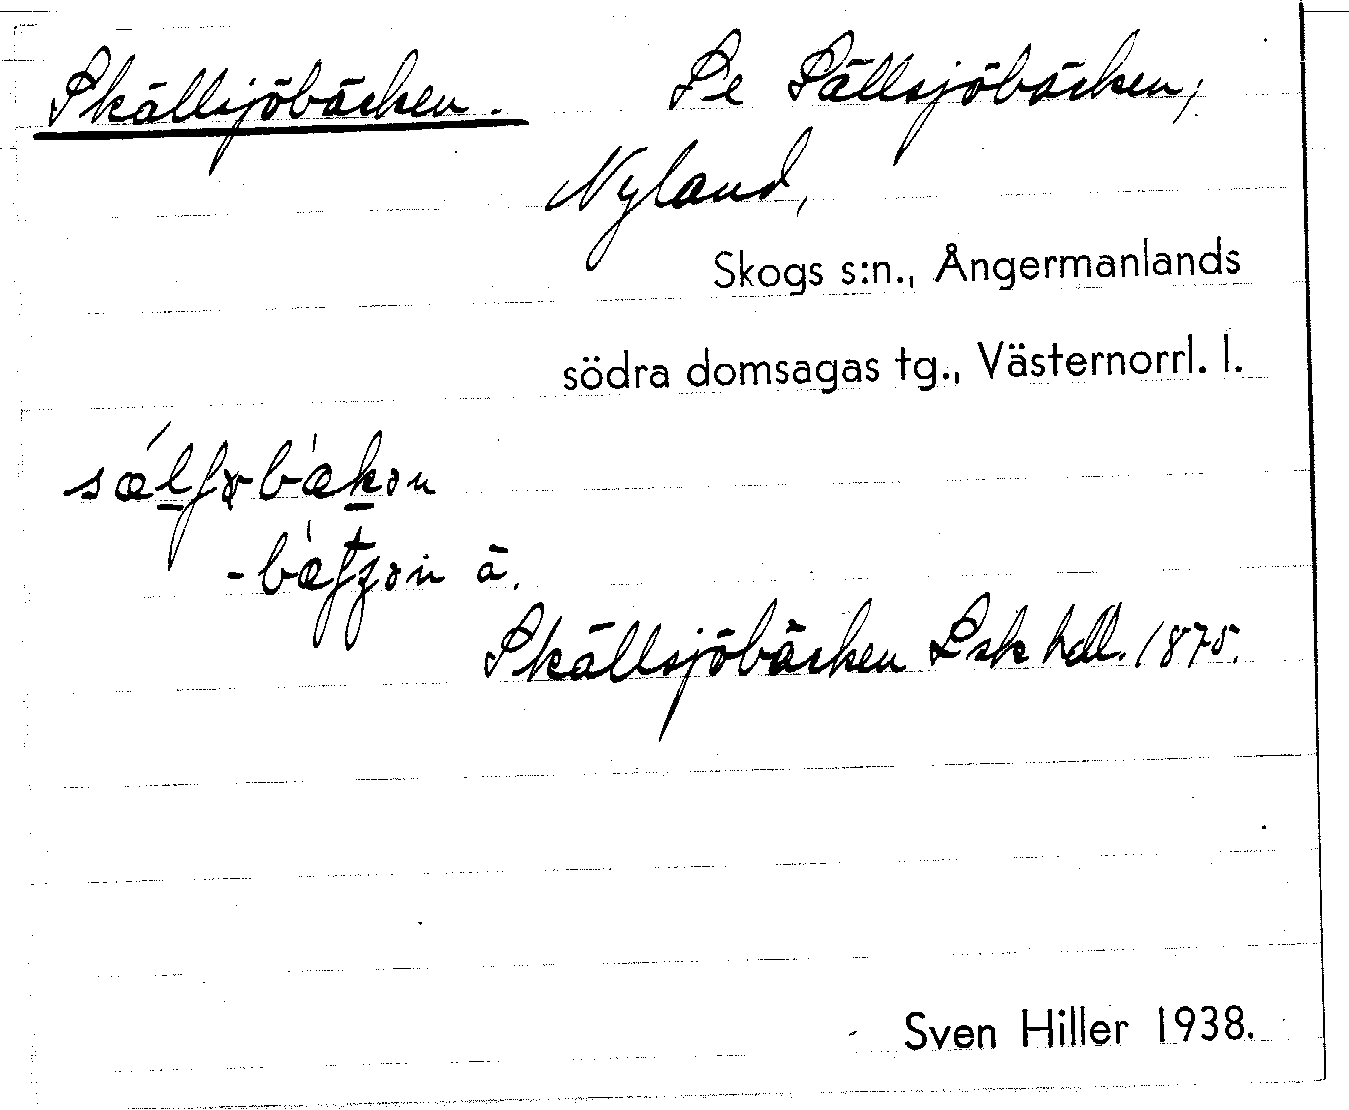 Skällsjöbäcken. Se Sällsjöbäcken,
Nyland,
Skogs s:n., Ångermanlands
södra domsagas tg., Västernorrl. l.
-bäcken ä.
Skällsjöbäcken Lsk hdl. 1875.
Sven Hiller 1938.